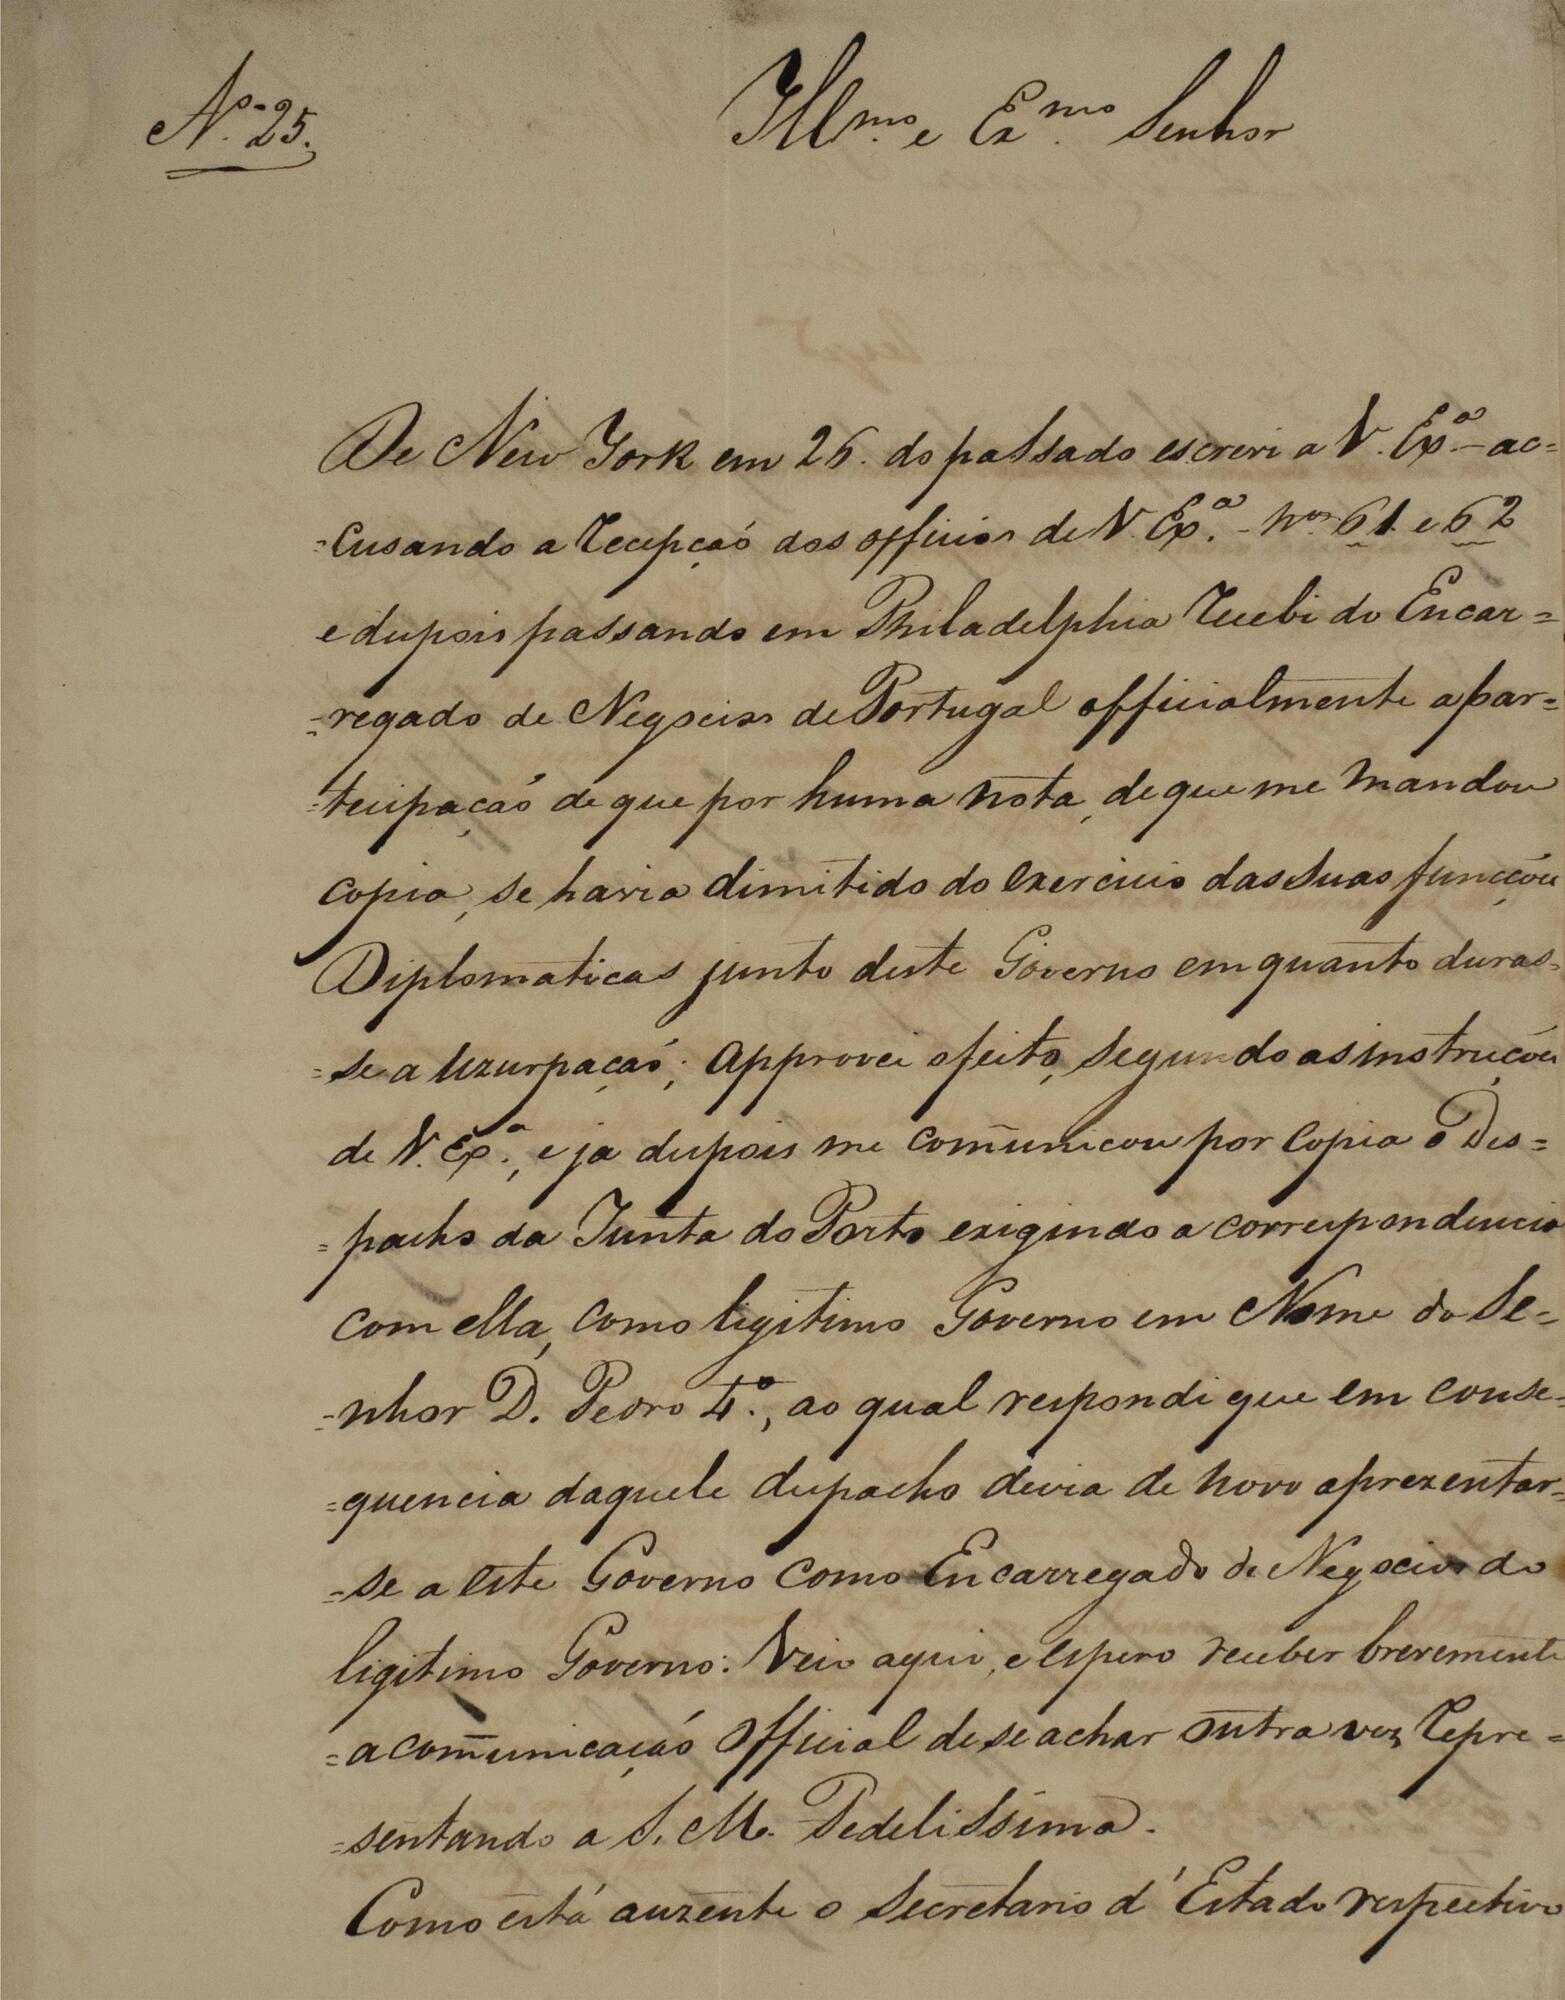 Nº 25.
Illmo. e Exmo. Senhor
De New York em 26. do passado escrevi a V. Exª. - ac=
=cusando a recepção dos officios de V. Exª. - Nos. 61 e 62
e depois passando em Philadelphia recebi do Encar=
=regado de Negocios de Portugal officialmente a par=
=tecipação de que por huma nota, de que me mandou
copia, se havia dimitido do exercicio das suas funcções
Diplomaticas junto deste Governo em quanto duras=
=se a Uzurpação; approvei o feito, segundo as instrucções
de V. Exª., e ja depois me comunicou por copia o Des=
=pacho da Junta do Porto exigindo a correspondencia
com ella, como ligitimo Governo em Nome do Se=
=nhor D. Pedro 4º., ao qual respondi que em conse=
=quencia daquele despacho devia de novo aprezentar=
=se a este Governo como Encarregado de Negocios do
ligitimo Governo: Veio aqui, e espero receber brevemente
=a comunicação official de se achar outra vez repre=
=sentando a S. M. Fedelissima.
Como está auzente o Secretario d'Estado respectivo